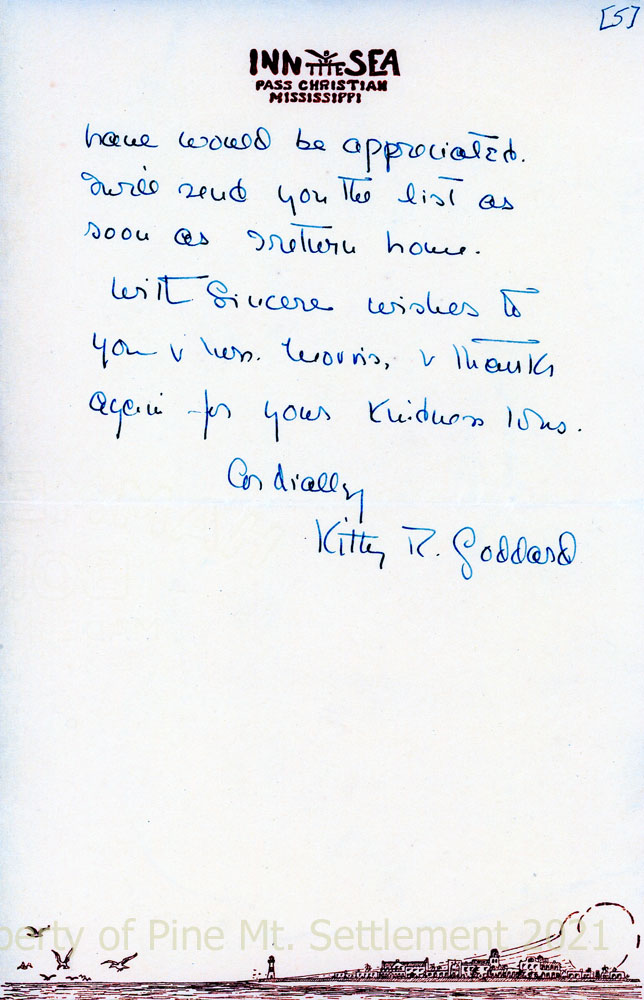 [5]
INN BY THE SEA
PASS CHRISTIAN
MISSISSIPPI
have would be appreciated.
I will send you the list as
soon as I return home.
With Sincere wishes to
you & Mrs. Morris, & thanks
again for your kindness
Cordially
Kitty R. Goddard
perty of Pine Mt. Settlement 2021